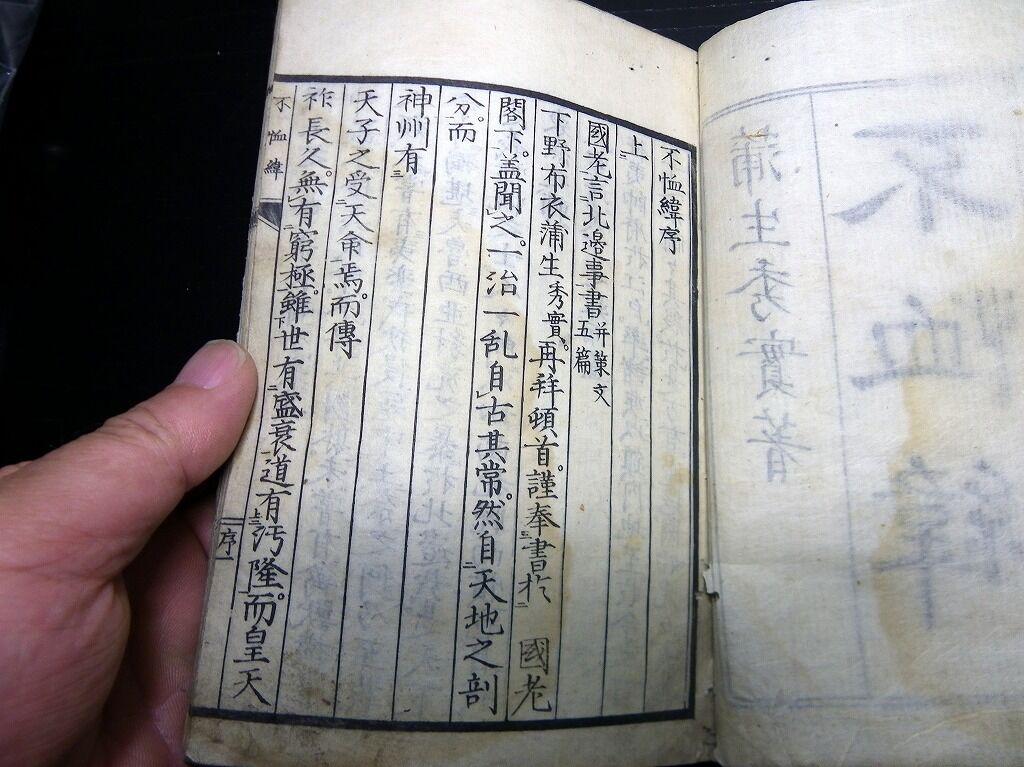 不恤緯序
上
國老言北邊事書 并策文五篇
下野布衣蒲生秀實。再拜頓首。謹奉書於 國老
閣下。盖聞之。一治一乱自古其常。然自天地之剖
分。而
神州有
天子之受天命焉。而傳
祚長久。無有窮極。雖世有盛衰道有汚隆。而皇天
不恤緯
序一
不恤緯
蒲生秀實著